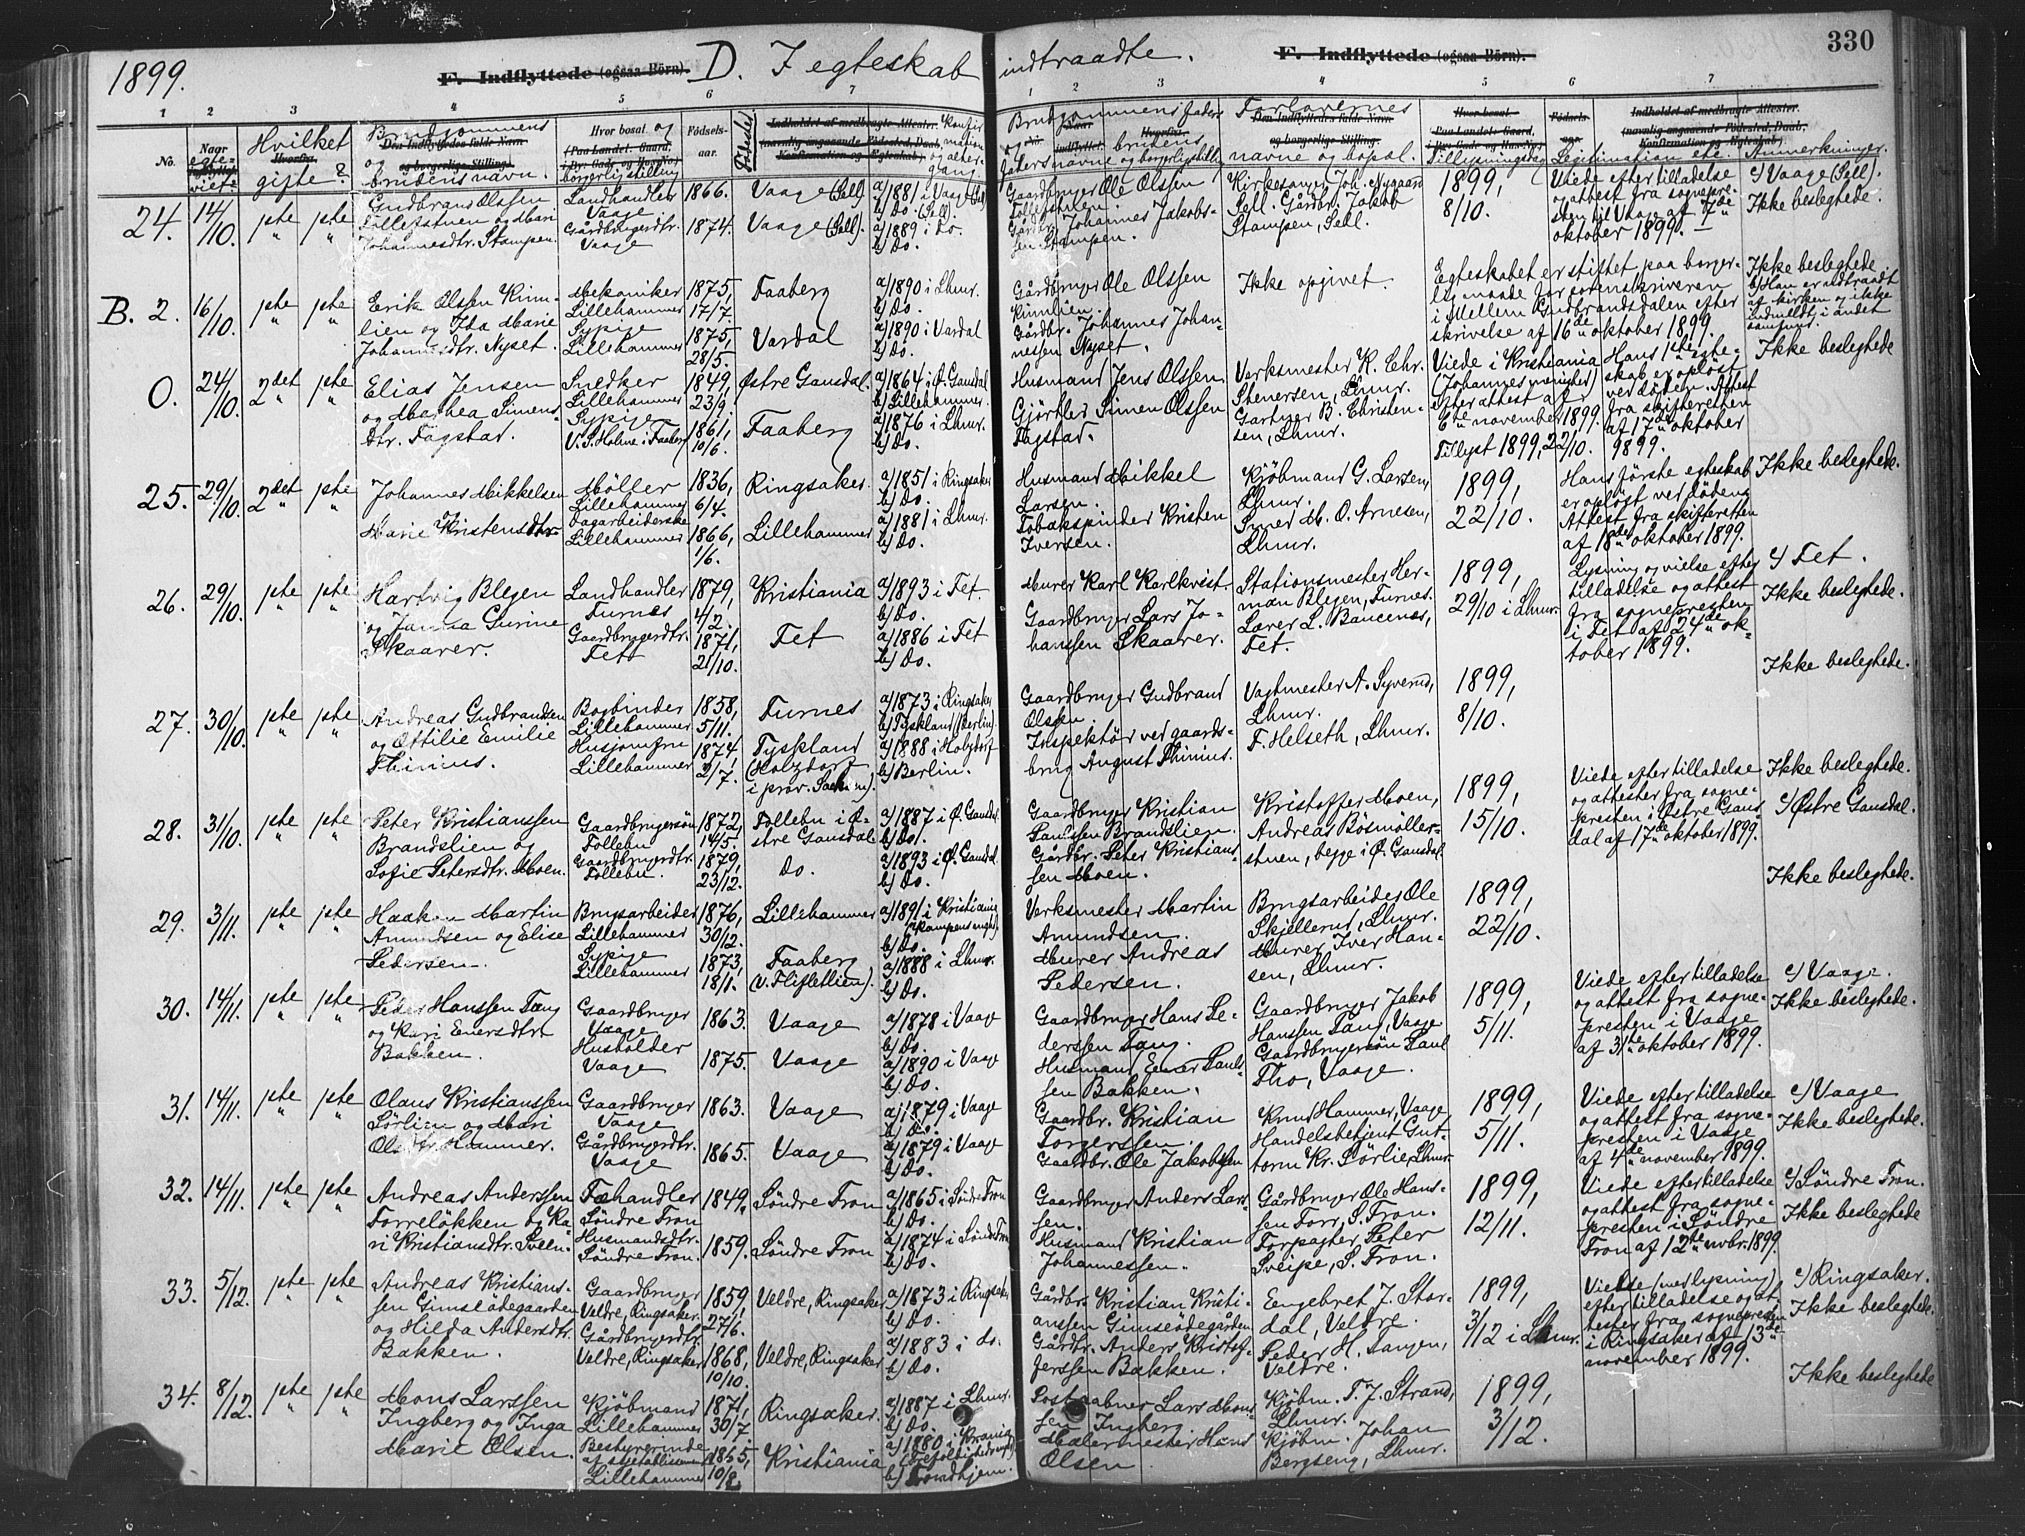 1899.
F. Indflyttede (ogsaa Börn).
D. Iegteskab indtraadte.
F. Indflyttede (ogsaa Börn).
330
1 2 3 4 5 6 7
1 2 3 4 5 6 7
No.
Naar
Hvilket
gifte?
Brudgommens
og
brudens navn.
Hvor bosat og
(Paa Landet: Gaard,
borgerlig stilling
Födsels-
aar.
Födested
Brudgommens faders
og brudens
faders navne og borgerlig stilling
Forlovernes
navne og bopæl.
Tillysningsdag
Legitimation etc.
Anmerkninger.
24. 14/10. 1ste 1ste
Gudbrand Olssen
Landhandler
Vaage
1866.
Vaage (Sell)
a) 1881 i Vaage (Sell)
b) Do. (Sell).
Gaardbruger Ole Olssen
Kirkesanger Joh. Nygaard
Sell. Gårdbr. Jakob
Stampen, Sell.
1899,
8/10.
Viede efter tilladelse
og attest fra sognepre-
sten til Vaage af 7de
oktober 1899.
c) Vaage (Sell).
Ikke beslegtede.
Johannesdtr. Stampen.
Gårdbrugerdtr.
Vaage
1874.
Vaage (Sell).
a) 1889 i Do.
b) Do.
Gårdbr. Johannes Jakobs-
sen Stampen.
B. 2. 16/10. 1ste 1ste
Erik Olssen Kinn-
lien og Ida Marie
Johannesdtr. Nyset.
Mekaniker
Lillehammer
Sypige
Lillehammer
1875,
17/7.
1875,
28/5.
Faaberg
Vardal
a) 1890 i Lhmr.
b) Do.
a) 1890 i Vardal
b) Do.
Gårdbruger Ole Olssen
Kinnlien.
Gårdbr. Johannes Johan-
nessen Nyset.
Ikke opgivet.
Egteskabet er stiftet paa borger-
lig maade for sorenskriveren
i Mellem Gudbrandsdalen efter
skrivelse af 16de oktober 1899.
Ikke beslegtede
b) Han er udtraadt
af kirken og ikke
indmeldt i andet
samfund.
O. 24/10. 2det 1ste
Elias Jensen
og Mathea Simens-
dtr. Fagstad.
Snedker
Lillehammer
Sypige
V. S. Holme i Faaberg
1849,
23/9.
1861,
10/6.
Østre Gausdal.
Faaberg
a) 1864 i Ø. Gausdal
b) Lillehammer.
a) 1876 i Lhmr.
b) Do.
Husmand Jens Olssen.
Gjörtler Simen Olssen
Fagstad.
Verksmester K. Chr.
Stenersen, Lhmr.
Gartner B. Christen-
sen, Lhmr.
Viede i Kristiania
(Johannes menighed)
efter attest af
6te november 1899.
Tillyst 1899, 22/10.
Hans 1ste egte-
skab er oplöst
ved döden. Attest
fra skifteretten
af 17de oktober
9899.
Ikke beslegtede
25. 29/10. 2det 1ste
Johannes Mikkelsen
Marie Kristensdtr.
Möller
Lillehammer
Dagarbeiderske
Lillehammer
1836,
6/4.
1866,
1/6.
Ringsaker.
Lillehammer
a) 1851 i Ringsaker
b) Do.
a) 1881 i Lhmr.
b) Do.
Husmand Mikkel
Larsen.
Tobakspinder Kristen
Iversen.
Kjöbmand G. Larsen,
Lhmr.
Smed M. O. Arnesen,
Lhmr.
1899,
22/10.
Hans förste egteskab
er oplöst ved döden.
Attest fra skifteretten
af 18de oktober 1899.
Ikke beslegtede.
26. 29/10. 1ste 1ste
Hartvig Blegen
og Janna Gurine
Skaarer.
Landhandler
Furnes
Gaardbrugerdtr.
Fet
1879,
4/2.
1871,
21/10.
Kristiania
Fet
a) 1893 i Fet.
b) Do.
a) 1886 i Fet
b) Do.
Murer Karl Karlkvist.
Gaardbruger Lars Jo-
hanssen Skaarer.
Stationsmester Her-
man Blegen, Furnes.
Lærer L. Bancenes,
Fet.
1899,
29/10 i Lhmr.
Lysning og vielse efter
tilladelse og attest
fra sognepresten
i Fet af 24de ok-
tober 1899.
c) Fet.
Ikke beslegtede.
27. 30/10. 1ste 1ste
Andreas Gudbrandsen
og Ottilie Emilie
Thimus.
Bogbinder
Lillehammer
Husjomfru
Lillehammer
1858,
5/11.
1874,
2/7.
Furnes
Tyskland
(Holzdorf
i prov. Sachsen).
a) 1873 i Ringsaker
b) Tyskland (Berlin).
a) 1888 i Holzdorf
b) Berlin.
Gaardbruger Gudbrand
Olsen.
Inspektör ved gaards-
brug August Thimus.
Vagtmester A. Syverud,
Lhmr.
F. Helseth, Lhmr.
1899,
8/10.
Ikke beslegtede.
28. 31/10. 1ste 1ste
Peter Kristianssen
Brandslien og
Sofie Petersdtr. Moen.
Gaardbrugersön
Follebu
Gaardbrugerdtr.
Follebu.
1872,
14/5.
1879,
23/12.
Follebu i Ö-
stre Gausdal
do.
a) 1887 i Ø. Gausdal
b) Do.
a) 1893 i Ø. Gausdal
b) Do.
Gaardbruger Kristian
Paulssen Brandslien.
Gårdbr. Peter Kristians-
sen Moen.
Kristoffer Moen,
Andreas Bösmöller-
stuen, begge i Ø. Gausdal
1899,
15/10.
Viede efter tilladelse
og attester fra sogne-
presten i Østre Gaus-
dal af 17de oktober 1899.
Ikke beslegtede.
c) Østre Gausdal.
29. 3/11. 1ste 1ste
Haakon Martin
Amundsen og Elise
Pedersen.
Brugsarbeider
Lillehammer
Sypige
Lillehammer
1876,
30/12.
1873,
18/1.
Lillehammer
Faaberg
(v. Fliflethien).
a) 1891 i Kristiania
(Kampens mgh).
b) Do.
a) 1888 i Lhmr.
b) Do.
Verksmester Martin
Amundsen.
Murer Andreas
Pedersen.
Brugsarbeider Ole
Skjellerud, Lhmr.
Murer Iver Han-
sen, Lhmr.
1899,
22/10.
Ikke beslegtede.
30. 14/11. 1ste 1ste
Peder Hanssen Tang
og Kari Enersdtr.
Bakken.
Gaardbruger
Vaage
Husholder
Vaage
1863.
1875.
Vaage
Vaage
a) 1878 i Vaage
b) Do.
a) 1890 i Vaage
b) Do.
Gaardbruger Hans Pe-
derssen Tang.
Husmand Ener Pauls-
sen Bakken.
Gaardbruger Jakob
Hanssen Tang, Vaage
Gaardbrugersön Paul
Tho, Vaage.
1899,
5/11.
Viede efter tilladelse
og attest fra sogne-
presten i Vaage
af 31te oktober 1899.
c) Vaage.
Ikke beslegtede.
31. 14/11. 1ste 1ste
Olaus Kristianssen
Sörlien og Mari
Olsdtr. Hammer.
Gaardbruger
Vaage
Gårdbrugerdtr.
Vaage
1863.
1865.
Vaage
Vaage
a) 1879 i Vaage
b) Do.
a) 1879 i Vaage
b) Do.
Gaardbr. Kristian
Torgerssen.
Gaardbr. Ole Jakobssen
Knud Hammer, Vaage
Handelsbetjent Gut-
torm Kr. Sörlie, Lhmr.
1899,
5/11.
Viede efter tilladelse
og attest fra sogne-
presten i Vaage
af 4de november 1899.
c) Vaage
Ikke beslegtede.
32. 14/11. 1ste 1ste
Andreas Anderssen
Forreløkken og Ka-
ri Kristiansdtr. Sveen.
Fæhandler
Söndre Fron
Husmandsdtr.
Söndre Fron.
1849.
1859.
Söndre Fron
Söndre Fron
a) 1865 i Söndre Fron
b) Do.
a) 1874 i Söndre Fron
b) Do.
Gaardbruger Anders Lars-
sen.
Husmand Kristian
Johannessen.
Gårdbruger Ole Hans-
sen Forr, S. Fron.
Forpagter Peter
Sveipe, S. Fron.
1899,
12/11.
Viede efter tilladelse
og attest fra sogne-
presten i Söndre
Fron af 12te novbr. 1899.
c) Söndre Fron.
Ikke beslegtede
33. 5/12. 1ste 1ste
Andreas Kristians-
sen Gimseödegaarden
og Hilda Andersdtr.
Bakken.
Gaardbruger
Veldre, Ringsaker.
Gårdbrugerdtr.
Veldre, Ringsaker
1859,
27/6.
1868,
10/10.
Veldre, Ringsaker
Veldre, Ringsaker
a) 1873 i Ringsaker
b) Do.
a) 1883 i do.
b) Do.
Gårdbr. Kristian Kristi-
anssen Gimseödegården
Gårdbr. Anders Kristof-
ferssen Bakken.
Engebret J. Stor-
dal, Veldre.
Peder H. Tangen,
Veldre.
1899,
3/12 i Lhmr.
Vielse (med lysning)
efter tilladelse og at-
tester fra sognepresten
i Ringsaker af 13de
november 1899.
c) Ringsaker.
Ikke beslegtede.
34. 8/12. 1ste 1ste
Mons Larssen
Ingberg og Inga
Marie Olsen.
Kjöbmand
Lillehammer
Bestyrerinde
Lillehammer
1871,
30/7.
1865,
10/8.
Ringsaker.
Kristiania
a) 1887 i Lhmr.
b) Do.
a) 1880 i Krania
b) Trondhjem.
Postaabner Lars Mons-
sen Ingberg
Malermester Hans
Olsen
Kjöbm. T. J. Strand,
Lhmr.
Kjöbm. Johan
Bergseng, Lhmr.
1899,
3/12.
Ikke beslegtede